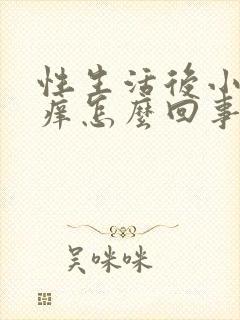 性生活後小
痒怎麽回事
吴咪咪